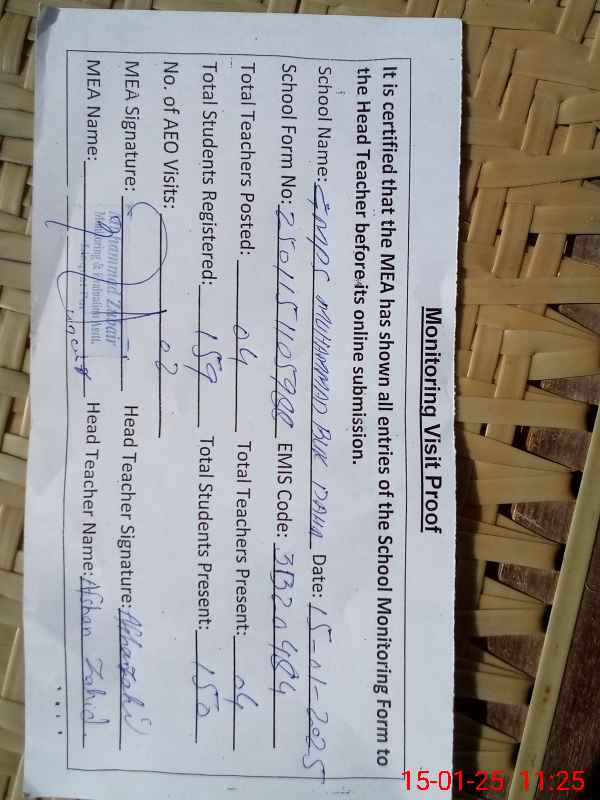 Monitoring Visit Proof
It is certified that the MEA has shown all entries of the School Monitoring Form to
the Head Teacher before its online submission.
School Name: GMPS MUHAMMAD BUX DAHA Date: 15-01-2025
School Form No: EMIS Code: 31320484
Total Teachers Posted: 04 Total Teachers Present: 04
Total Students Registered: 159 Total Students Present: 150
No. of AEO Visits: 02
MEA Signature: Head Teacher Signature:
Muhammad Zubair
Monitoring & Evaluation Assit.
MEA Name: Head Teacher Name: Afshan Zahid
15-01-25 11:25